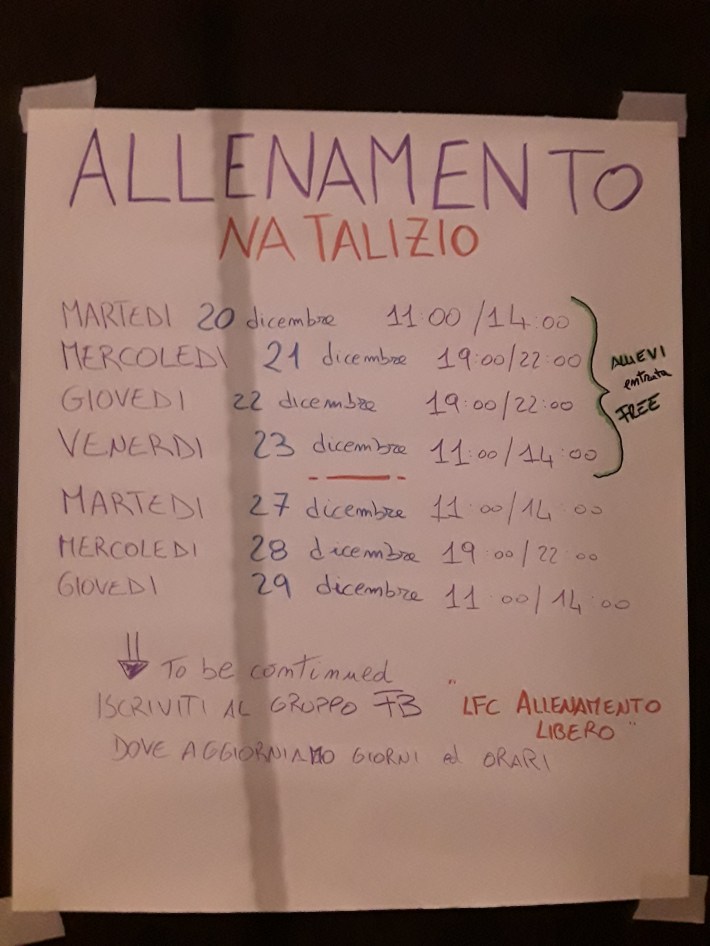 ALLENAMENTO
NATALIZIO
MARTEDI 20 dicembre 11:00/14:00
MERCOLEDI 21 dicembre 19:00/22:00
GIOVEDI 22 dicembre 19:00/22:00
VENERDI 23 dicembre 11:00/14:00
ALLIEVI
entrata
FREE
MARTEDI 27 dicembre 11:00/14:00
MERCOLEDI 28 dicembre 19:00/22:00
GIOVEDI 29 dicembre 11:00/14:00
To be continued
ISCRIVITI AL GRUPPO FB "LFC ALLENAMENTO
LIBERO"
DOVE AGGIORNIAMO GIORNI ed ORARI